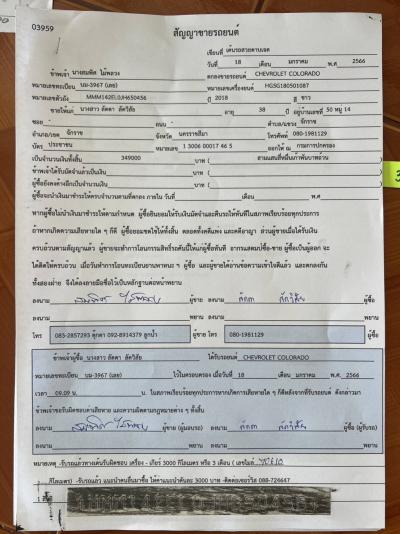 03959
สัญญาขายรถยนต์
เขียนที่ เต้นรถสวยดาบเจต
วันที่ 18 เดือน มกราคม พ.ศ. 2566
ข้าพเจ้า นางสมพิศ ไม้พลวง ตกลงขายรถยนต์ CHEVROLET COLORADO
หมายเลขทะเบียน บม-3967 (เลย) หมายเลขเครื่องยนต์ HGSG180501087
หมายเลขตัวถัง MMM142EL0JH650456 ปี 2018 สี ขาว
ขายให้แก่ นางสาว ลัดดา ลัดวิสัย อายุ 38 ปี อยู่บ้านเลขที่ 50 หมู่ 14
ซอย - ถนน - ตำบล/แขวง จักราช
อำเภอ/เขต จักราช จังหวัด นครราชสีมา โทรศัพท์ 080-1981129
บัตร ประชาชน หมายเลข 1 3006 00017 46 5 ออกให้ ณ กรมการปกครอง
เป็นจำนวนเงินทั้งสิ้น 349000 บาท ( สามแสนสี่หมื่นเก้าพันบาทถ้วน )
ข้าพเจ้าได้รับมัดจำแล้วเป็นเงิน บาท ( )
ผู้ซื้อยังคงค้างอีกเป็นจำนวนเงิน บาท ( )
ผู้ซื้อจะนำเงินมาชำระให้ครบจำนวนตามที่ตกลง ภายใน วันที่ เดือน พ.ศ.
หากผู้ซื้อไม่นำเงินมาชำระให้ตามกำหนด ผู้ซื้อยินยอมให้ริบเงินมัดจำและคืนรถให้ทันทีในสภาพเรียบร้อยทุกประการ
ถ้าหากเกิดความเสียหายใด ๆ ก็ดี ผู้ซื้อยอมชดใช้ให้ทั้งสิ้น ตลอดทั้งคดีแพ่ง และคดีอาญา ส่วนผู้ขายเมื่อได้รับเงิน
ครบถ้วนตามสัญญาแล้ว ผู้ขายจะทำการโอนกรรมสิทธิ์รถคันนี้ให้แก่ผู้ซื้อทันที
ได้สิทธิให้ครบถ้วน เมื่อวันทำการโอนทะเบียนยานพาหนะ ฯ ผู้ซื้อ และผู้ขายได้อ่านข้อความเข้าใจดีแล้ว และตกลงกัน
ทั้งสองฝ่าย จึงได้ลงลายมือชื่อไว้เป็นหลักฐานต่อหน้าพยาน
ลงนาม สมพิศ ไม้พลวง ผู้ขาย ลงนาม ลัดดา ลัดวิสัย ผู้ซื้อ
ลงนาม พยาน ลงนาม พยาน
โทร 085-2857293 ตุ๊กตา 092-8914379 ลูกน้ำ ผู้ขาย โทร 080-1981129 ผู้ซื้อ
ข้าพเจ้าผู้ซื้อ นางสาว ลัดดา ลัดวิสัย ได้รับรถยนต์ CHEVROLET COLORADO
หมายเลขทะเบียน บม-3967 (เลย) ไว้ในครอบครอง เมื่อวันที่ 18 เดือน มกราคม พ.ศ. 2566
เวลา 09.09 น. น. ในสภาพเรียบร้อยทุกประการหากเกิดการเสียหายใด ๆ ก็ดีหลังจากที่รับรถยนต์ ดังกล่าวมา
ข้าพเจ้าขอรับผิดชอบค่าเสียหาย และความผิดตามกฎหมายต่าง ๆ ทั้งสิ้น
ลงนาม สมพิศ ไม้พลวง ผู้ขาย (ผู้มอบรถ) ลงนาม ลัดดา ลัดวิสัย ผู้ซื้อ (ผู้รับรถ)
ลงนาม พยาน ลงนาม พยาน
หมายเหตุ -รับรถแล้วทางเต้นรับผิดชอบ เครื่อง - เกียร์ 3000 กิโลเมตร หรือ 3 เดือน ( เลขไมล์
กิโลเมตร) -รับรถแล้ว แนะนำคนอื่นมาซื้อ ให้ค่าแนะนำคันละ 3000 บาท -ติดต่อเซอร์วิส 088-724647